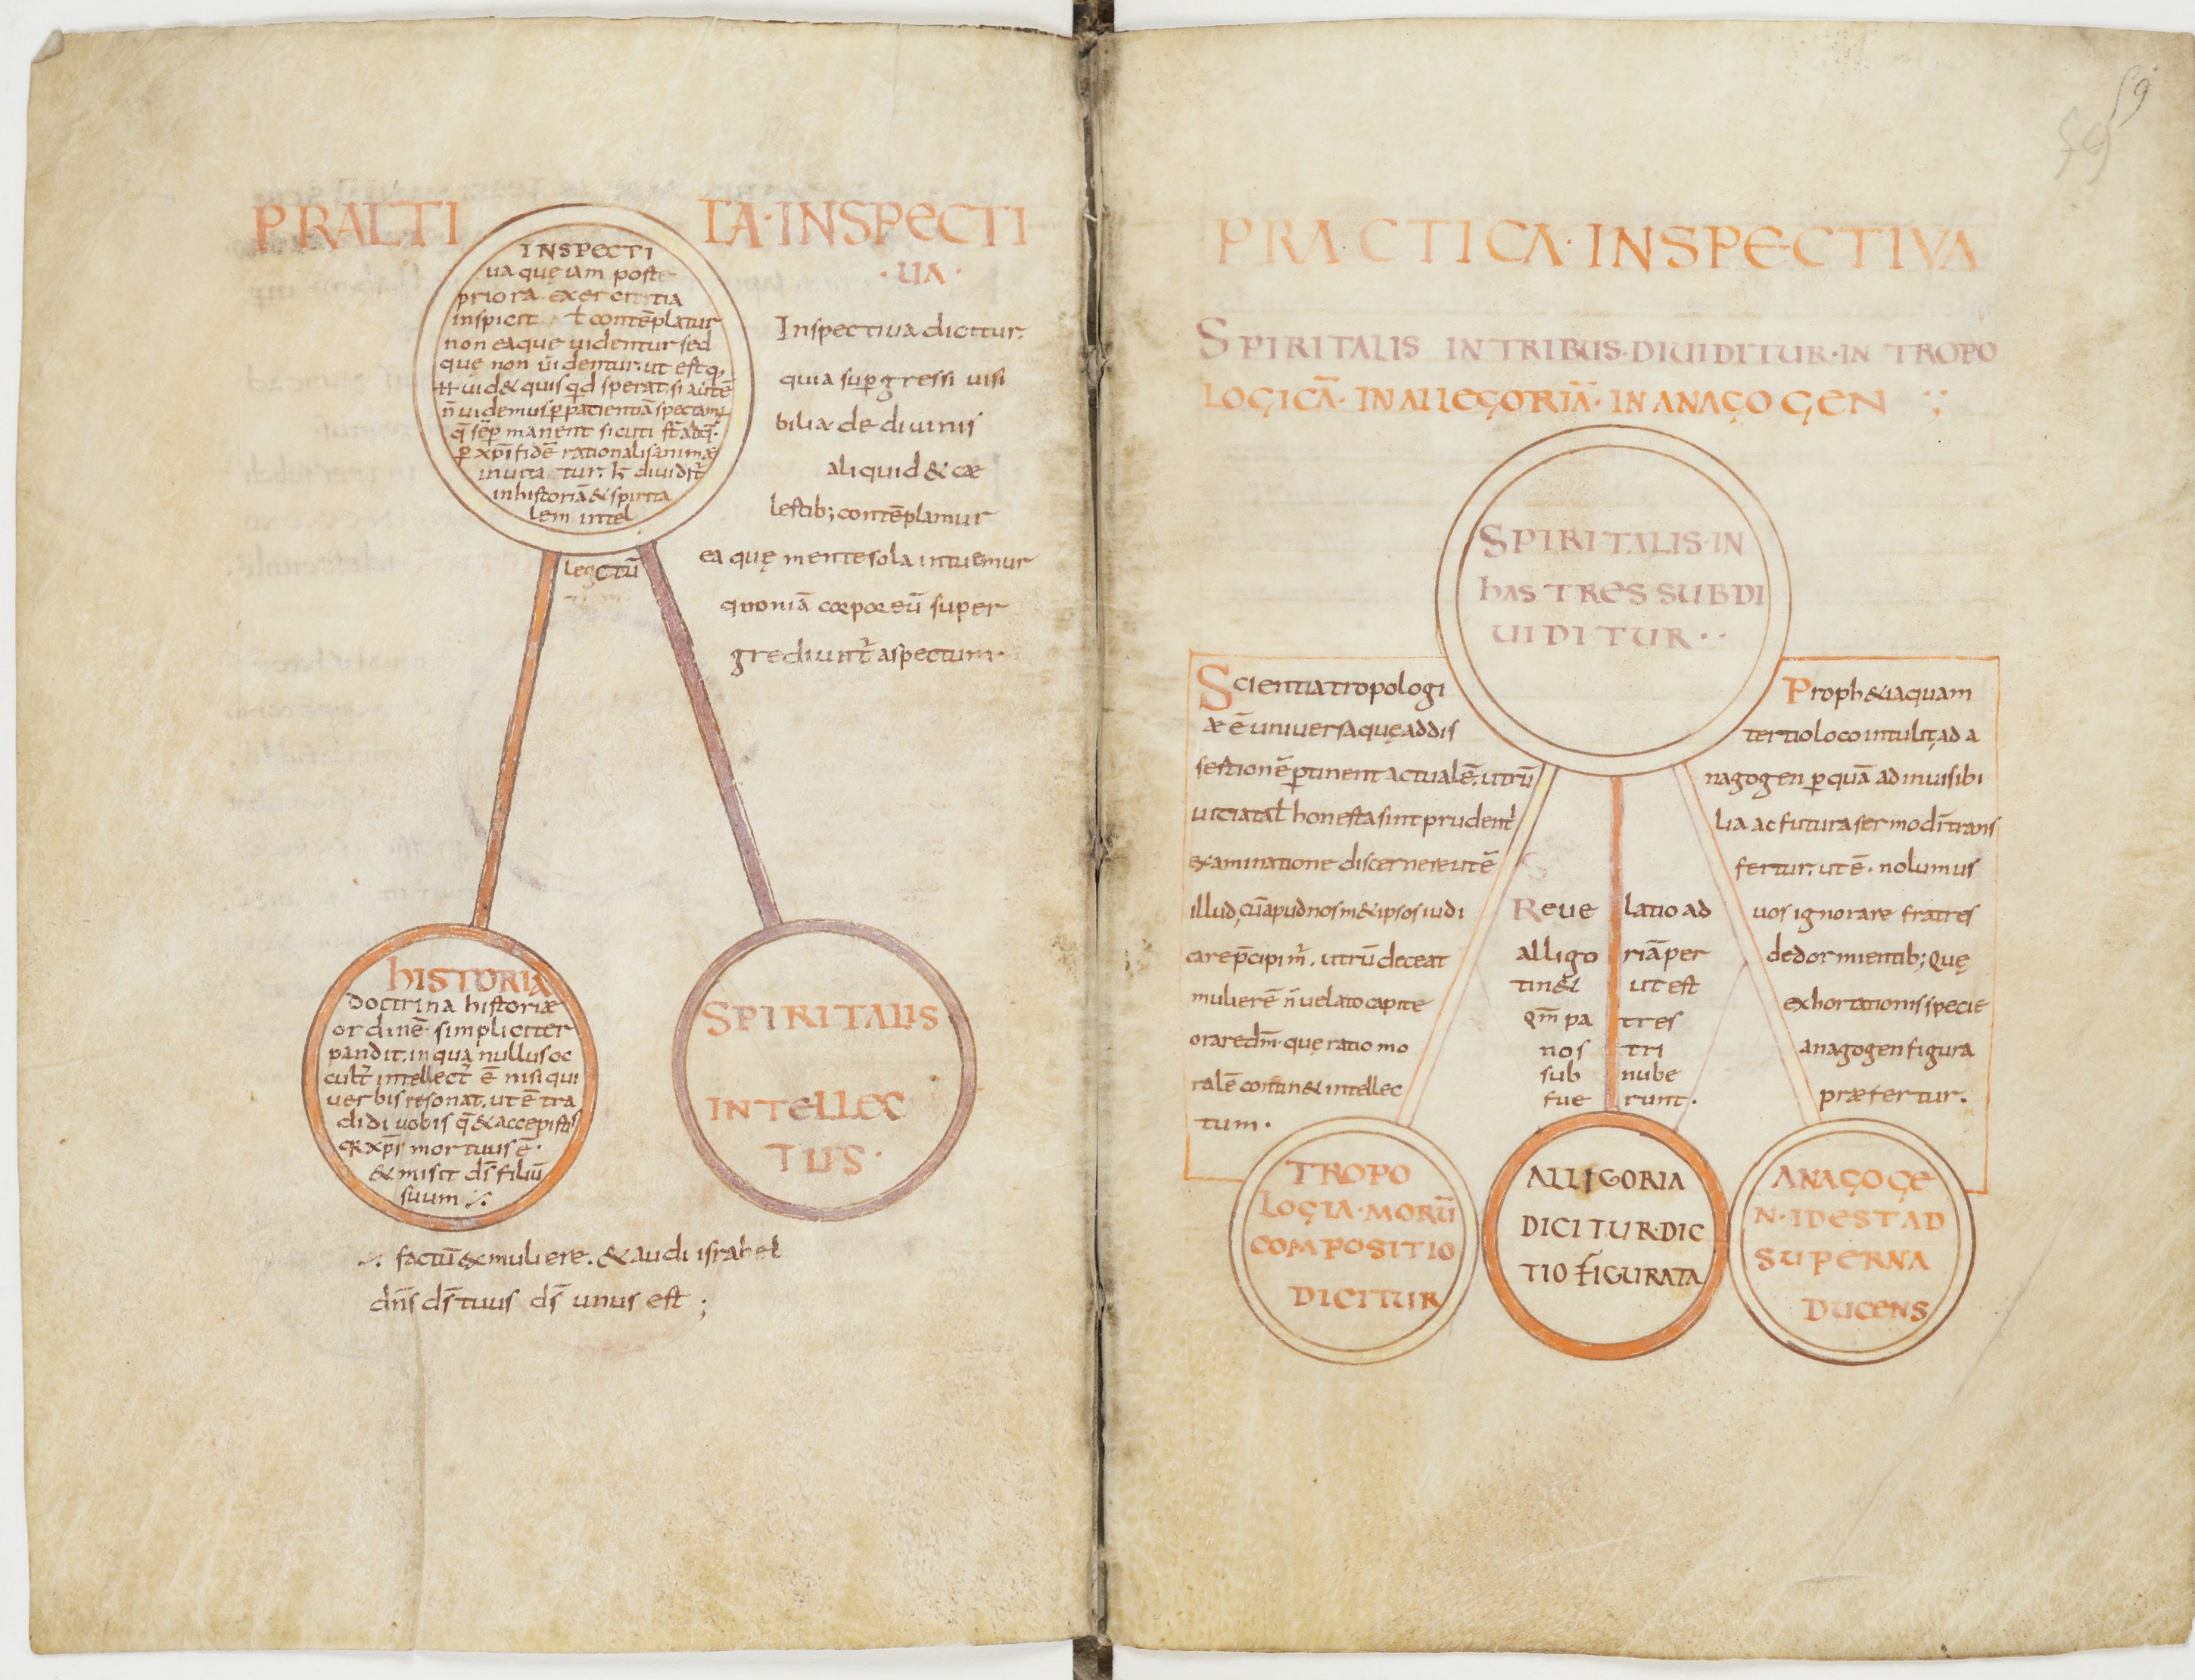 PRALTI IA·INSPECTI
·UA·
INSPECTI
ua quę iam poste
priora exercitia
inspicit ł contēplatur
non ea que uidentur sed
quę non uidentur. ut est
uid& quis qd sperat. si autē
n̄ uidemus p patientiā
q̄ sēp manent sicuti
p xp̄i fidē rationalis animæ
inuita tur. diuidit̄
in historiā & spirita
lem intel
lectū
Inspectiua dicitur.
quia supgressi uisi
bilia de diuinis
aliquid & cæ
lestib; contēplamur
ea quę mente sola intuemur
quoniā corporeū super
grediunt̄ aspectum.
HISTORIA
Doctrina historiæ
ordinē simpliciter
pandit. in qua nullus oc
cult̄ intellect̄ ē nisi qui
uerbis resonat. ut ē tra
didi uobis q̄ & accepistis
xp̄s mortuus ē.
& misit ds̄ filiū
suum ⁒
⁒ factū ex muliere. & audi israhel
dn̄s ds̄ tuus ds̄ unus est ;
SPIRITALIS
INTELLEC
TUS·
59
59
PRACTICA·INSPECTIVA
SPIRITALIS IN TRIBUS·DIUIDITUR·IN TROPO
LOGICĀ· IN ALLEGORIĀ· IN ANAGOGEN ;
SPIRITALIS·IN
hAS TRES SUBDI
UIDITUR··
Scientia tropologi
æ ē uniuersa quę addis
sestionē ptinent actualē. utrū
uitia tal honesta sint prudent
examinatione discernere ut ē
illud, cū apud nosm&ipsos iudi
care p̄cipim̄. utrū deceat
mulierē n̄ uelato capite
orare dm̄· quę ratio mo
ralē contin& intellec
tum.
Reue latio ad
alligo riā per
tin& ut est
qm̄ pa tres
nos tri
sub nube
fue runt.
Proph&ia quam
tertio loco intulit, ad a
nagogen p quā ad inuisibi
lia ac futura sermo dīrans
fertur. ut ē. nolumus
uos ignorare fratres
de dormientib; Quę
exhortationis specie
anagogen figura
præfertur.
TROPO
LOGIA·MORŪ
COMPOSITIO
DICITUR
ALLIGORIA
DICITUR·DIC
TIO FIGURATA
ANAGOGE
N·IDEST AD
SUPERNA
DUCENS